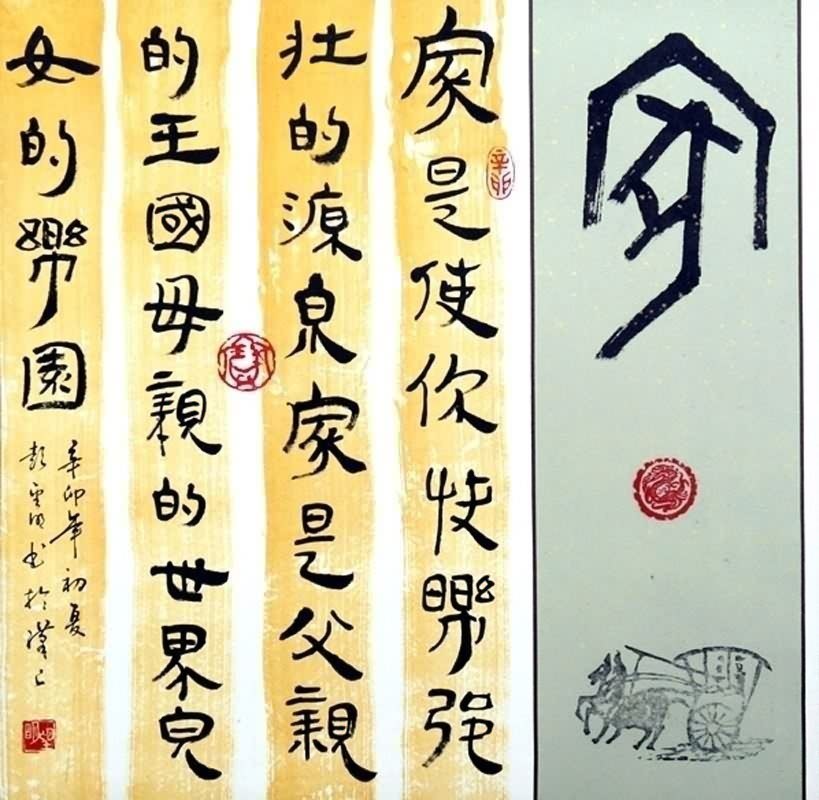 家
家是使你快樂強
辛卯
壯的源泉家是父親
的王國母親的世界兒
女的樂園
辛卯年初夏
彭 书於漢上